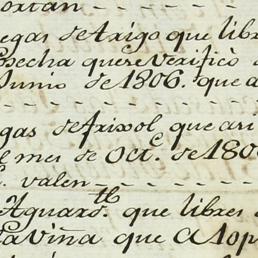 ortan
egas de trigo que libr
osecha que se verificò
Junio de 1806. que a
gas de frixol que asi
l mes de Oct.e de 180
valen
Aguard.te que libres
la viña que a lop